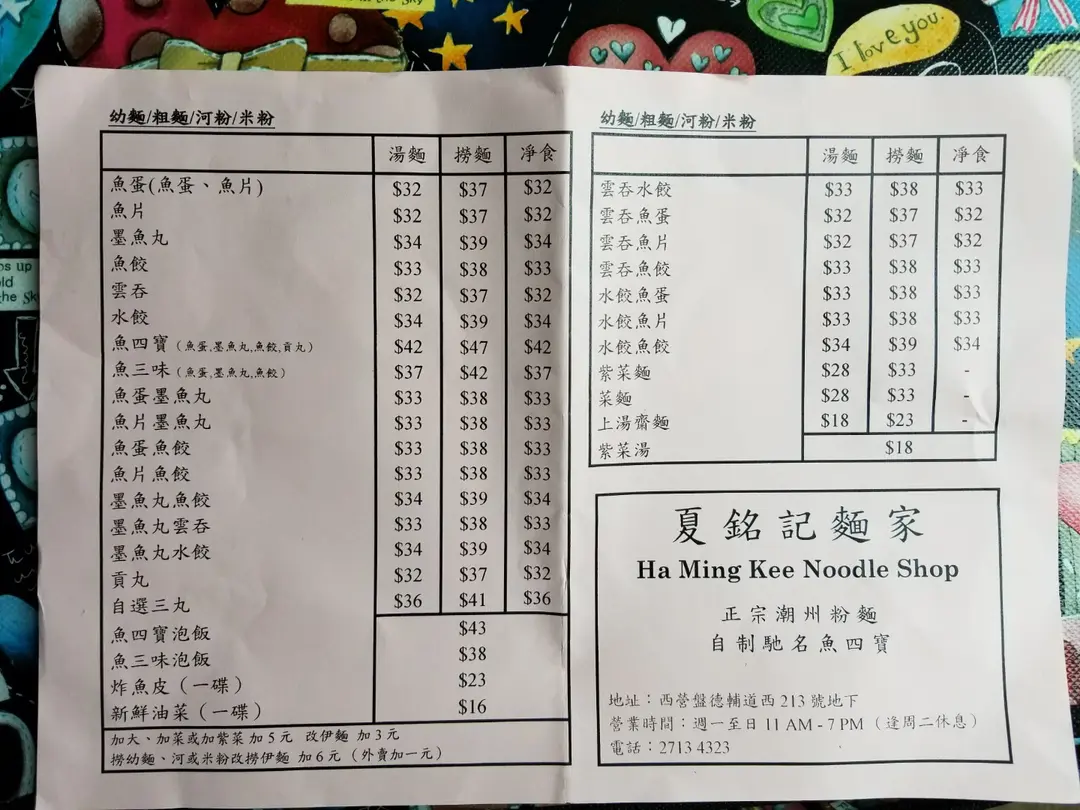 the Sky
I love you.
ps up
eld
the Sky
幼麵/粗麵/河粉/米粉
湯麵 撈麵 淨食
魚蛋(魚蛋、魚片) $32 $37 $32
魚片 $32 $37 $32
墨魚丸 $34 $39 $34
魚餃 $33 $38 $33
雲吞 $32 $37 $32
水餃 $34 $39 $34
魚四寶（魚蛋,墨魚丸,魚餃,貢丸） $42 $47 $42
魚三味（魚蛋,墨魚丸,魚餃） $37 $42 $37
魚蛋墨魚丸 $33 $38 $33
魚片墨魚丸 $33 $38 $33
魚蛋魚餃 $33 $38 $33
魚片魚餃 $33 $38 $33
墨魚丸魚餃 $34 $39 $34
墨魚丸雲吞 $33 $38 $33
墨魚丸水餃 $34 $39 $34
貢丸 $32 $37 $32
自選三丸 $36 $41 $36
魚四寶泡飯 $43
魚三味泡飯 $38
炸魚皮（一碟） $23
新鮮油菜（一碟） $16
加大、加菜或加紫菜 加5元 改伊麵 加3元
撈幼麵、河或米粉改撈伊麵 加6元（外賣加一元）
幼麵/粗麵/河粉/米粉
湯麵 撈麵 淨食
雲吞水餃 $33 $38 $33
雲吞魚蛋 $32 $37 $32
雲吞魚片 $32 $37 $32
雲吞魚餃 $33 $38 $33
水餃魚蛋 $33 $38 $33
水餃魚片 $33 $38 $33
水餃魚餃 $34 $39 $34
紫菜麵 $28 $33 -
菜麵 $28 $33 -
上湯齋麵 $18 $23 -
紫菜湯 $18
夏銘記麵家
Ha Ming Kee Noodle Shop
正宗潮州粉麵
自制馳名魚四寶
地址：西營盤德輔道西 213 號地下
營業時間：週一至日 11 AM - 7 PM（逢周二休息）
電話：2713 4323